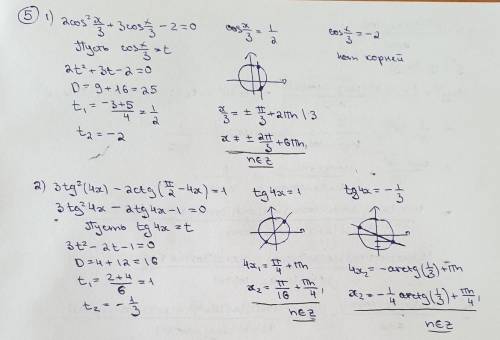 ⑤ 1) 2cos² x/3 + 3cos x/3 - 2 = 0
Пусть cos x/3 = t
2t² + 3t - 2 = 0
D = 9 + 16 = 25
t₁ = (-3+5)/4 = 1/2
t₂ = -2
cos x/3 = 1/2
x/3 = ± π/3 + 2πn | 3
x = ± 2π/3 + 6πn,
n∈Z
cos x/3 = -2
нет корней
2) 3tg²(4x) - 2ctg(π/2 - 4x) = 1
3tg²4x - 2tg4x - 1 = 0
Пусть tg4x = t
3t² - 2t - 1 = 0
D = 4 + 12 = 16
t₁ = (2+4)/6 = 1
t₂ = -1/3
tg4x = 1
4x₁ = π/4 + πn
x₂ = π/16 + πn/4,
n∈Z
tg4x = -1/3
4x₂ = -arctg(1/3) + πn
x₂ = -1/4 arctg(1/3) + πn/4,
n∈Z